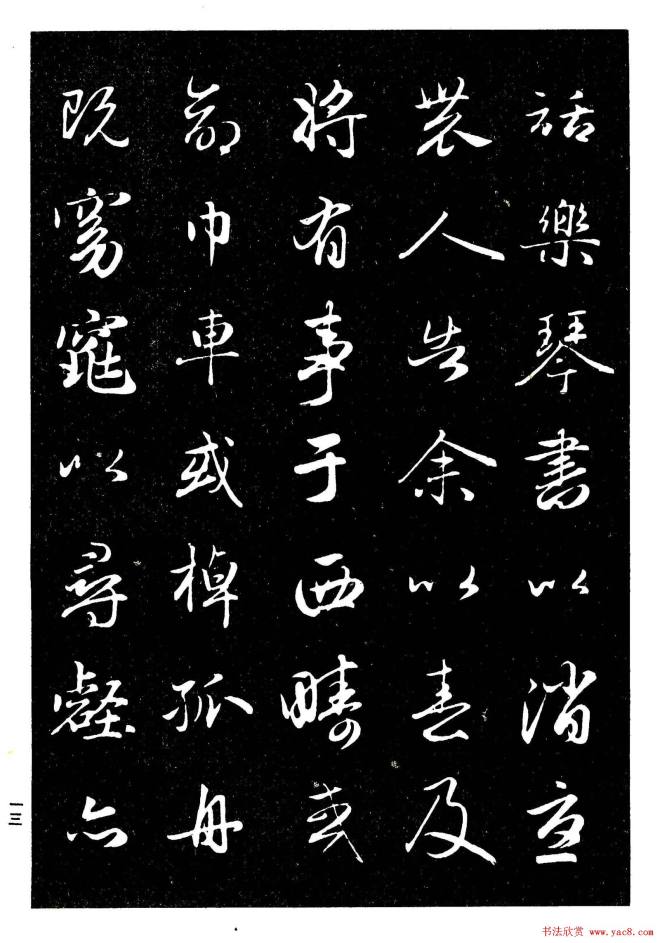 話樂琴書以消憂
農人告余以春及
將有事于西疇或
命巾車或棹孤舟
既窈窕以尋壑亦
一三
书法欣赏 www.yac8.com